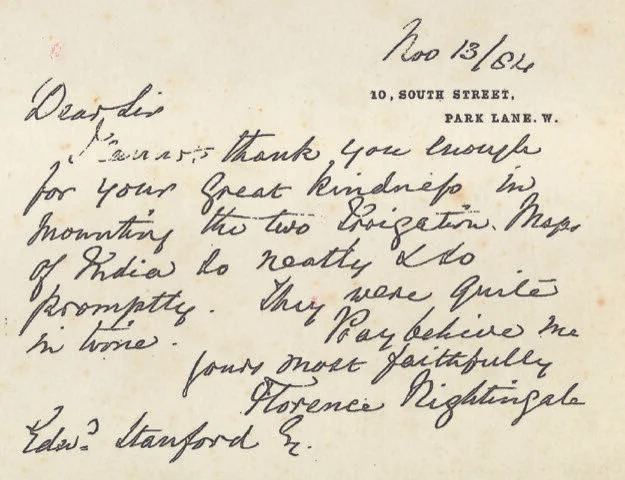 Nov 13/84
10, SOUTH STREET,
PARK LANE. W.
Dear Sir
I cannot thank you enough
for your great kindness in
mounting the two Irrigation Maps
of India so neatly & so
promptly. They were quite
in time. Pray believe me
yours most faithfully
Florence Nightingale
Edwd Stanford Es.